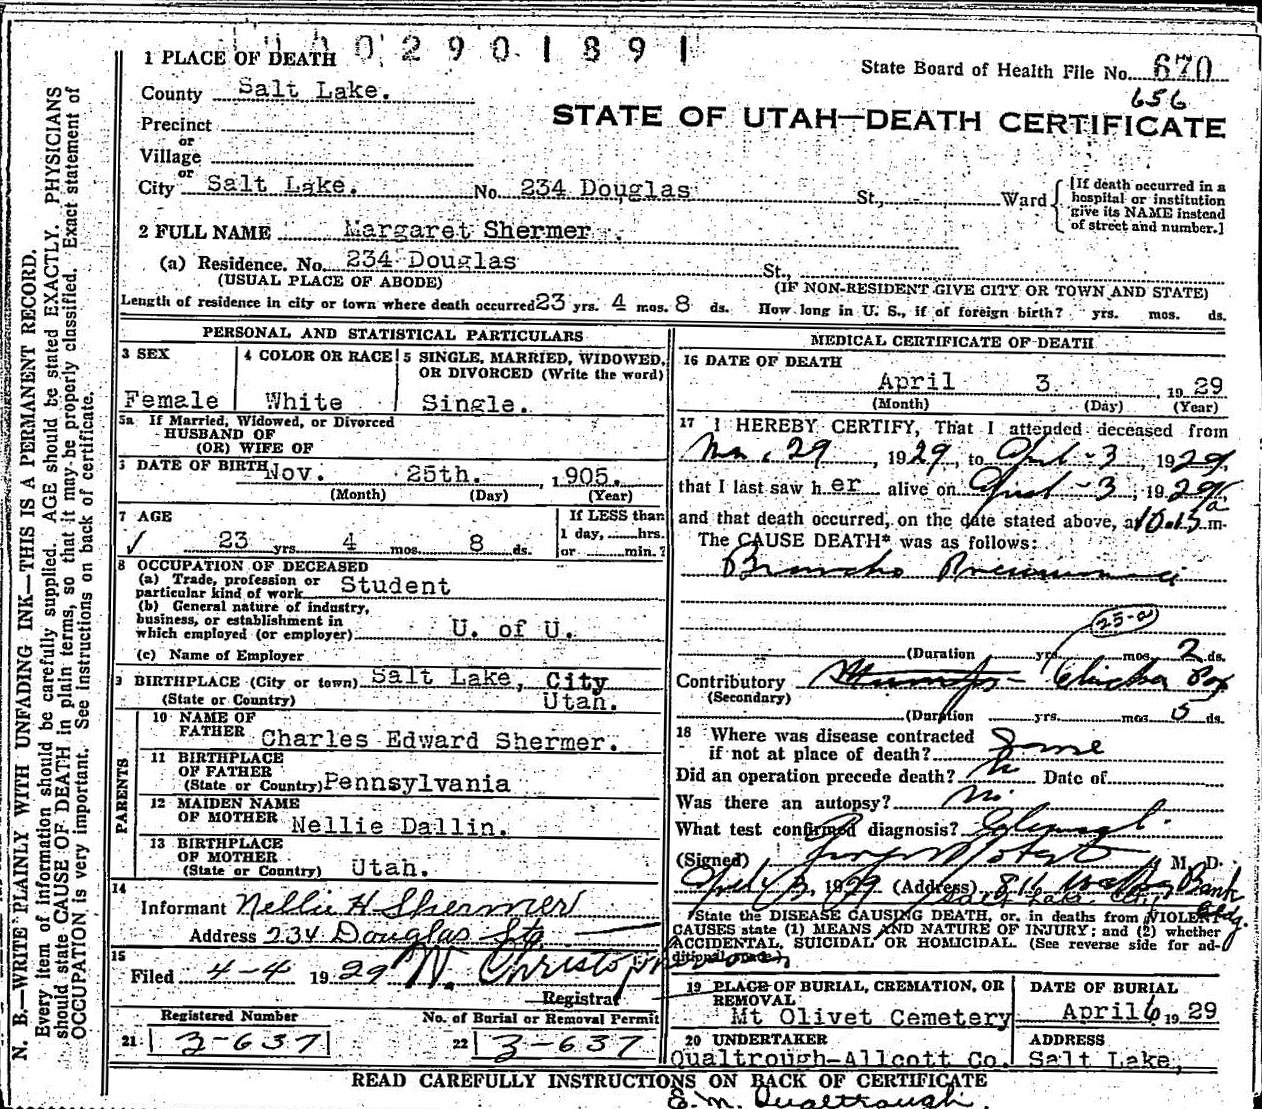 0 2 9 0 1 8 9 1
1 PLACE OF DEATH
State Board of Health File No. 670
656
County Salt Lake.
STATE OF UTAH—DEATH CERTIFICATE
Precinct
or
Village
or
City Salt Lake. No. 234 Douglas St., Ward
[If death occurred in a hospital or institution give its NAME instead of street and number.]
2 FULL NAME Margaret Shermer
(a) Residence. No. 234 Douglas St.,
(USUAL PLACE OF ABODE) (IF NON-RESIDENT GIVE CITY OR TOWN AND STATE)
Length of residence in city or town where death occurred 23 yrs. 4 mos. 8 ds. How long in U. S., if of foreign birth? yrs. mos. ds.
PERSONAL AND STATISTICAL PARTICULARS
3 SEX 4 COLOR OR RACE 5 SINGLE, MARRIED, WIDOWED,
OR DIVORCED (Write the word)
Female White Single.
5a If Married, Widowed, or Divorced
HUSBAND OF
(OR) WIFE OF
6 DATE OF BIRTH Nov. 25th. , 1905.
(Month) (Day) (Year)
7 AGE If LESS than
23 yrs. 4 mos. 8 ds. 1 day, hrs.
or min.?
8 OCCUPATION OF DECEASED
(a) Trade, profession or
particular kind of work Student
(b) General nature of industry,
business, or establishment in
which employed (or employer) U. of U.
(c) Name of Employer
9 BIRTHPLACE (City or town) Salt Lake, City
(State or Country) Utah.
PARENTS
10 NAME OF
FATHER Charles Edward Shermer.
11 BIRTHPLACE
OF FATHER
(State or Country) Pennsylvania
12 MAIDEN NAME
OF MOTHER Nellie Dallin.
13 BIRTHPLACE
OF MOTHER
(State or Country) Utah.
14
Informant Nellie H Shermer
Address 234 Douglas St
15
Filed 4-4 1929
Registrar
Registered Number No. of Burial or Removal Permit
21 3-637 22 3-637
MEDICAL CERTIFICATE OF DEATH
16 DATE OF DEATH
April 3. , 1929
(Month) (Day) (Year)
17 I HEREBY CERTIFY, That I attended deceased from
Mar. 29, 1929, to April-3, 1929,
that I last saw her alive on April-3, 1929,
and that death occurred, on the date stated above, at 10.15 a m.
The CAUSE DEATH* was as follows:
Broncho Pneumonia
25-a
(Duration yrs. mos. 2 ds.
Contributory Chicken Pox
(Secondary)
(Duration yrs. mos. 5 ds.
18 Where was disease contracted
if not at place of death? Same
Did an operation precede death? No Date of
Was there an autopsy? No.
What test confirmed diagnosis?
(Signed) M. D.
April 3, 1929 (Address) 816 Walker Bank
Salt Lake City Bldg.
*State the DISEASE CAUSING DEATH, or, in deaths from VIOLENT
CAUSES state (1) MEANS AND NATURE OF INJURY; and (2) whether
ACCIDENTAL, SUICIDAL OR HOMICIDAL. (See reverse side for ad-
ditional space.)
19 PLACE OF BURIAL, CREMATION, OR DATE OF BURIAL
REMOVAL
Mt Olivet Cemetery April 6 1929
20 UNDERTAKER ADDRESS
Qualtrough-Allcott Co. Salt Lake,
READ CAREFULLY INSTRUCTIONS ON BACK OF CERTIFICATE
E. M. Qualtrough.
N. B.—WRITE PLAINLY WITH UNFADING INK—THIS IS A PERMANENT RECORD.
Every item of information should be carefully supplied. AGE should be stated EXACTLY. PHYSICIANS
should state CAUSE OF DEATH in plain terms, so that it may be properly classified. Exact statement of
OCCUPATION is very important. See instructions on back of certificate.